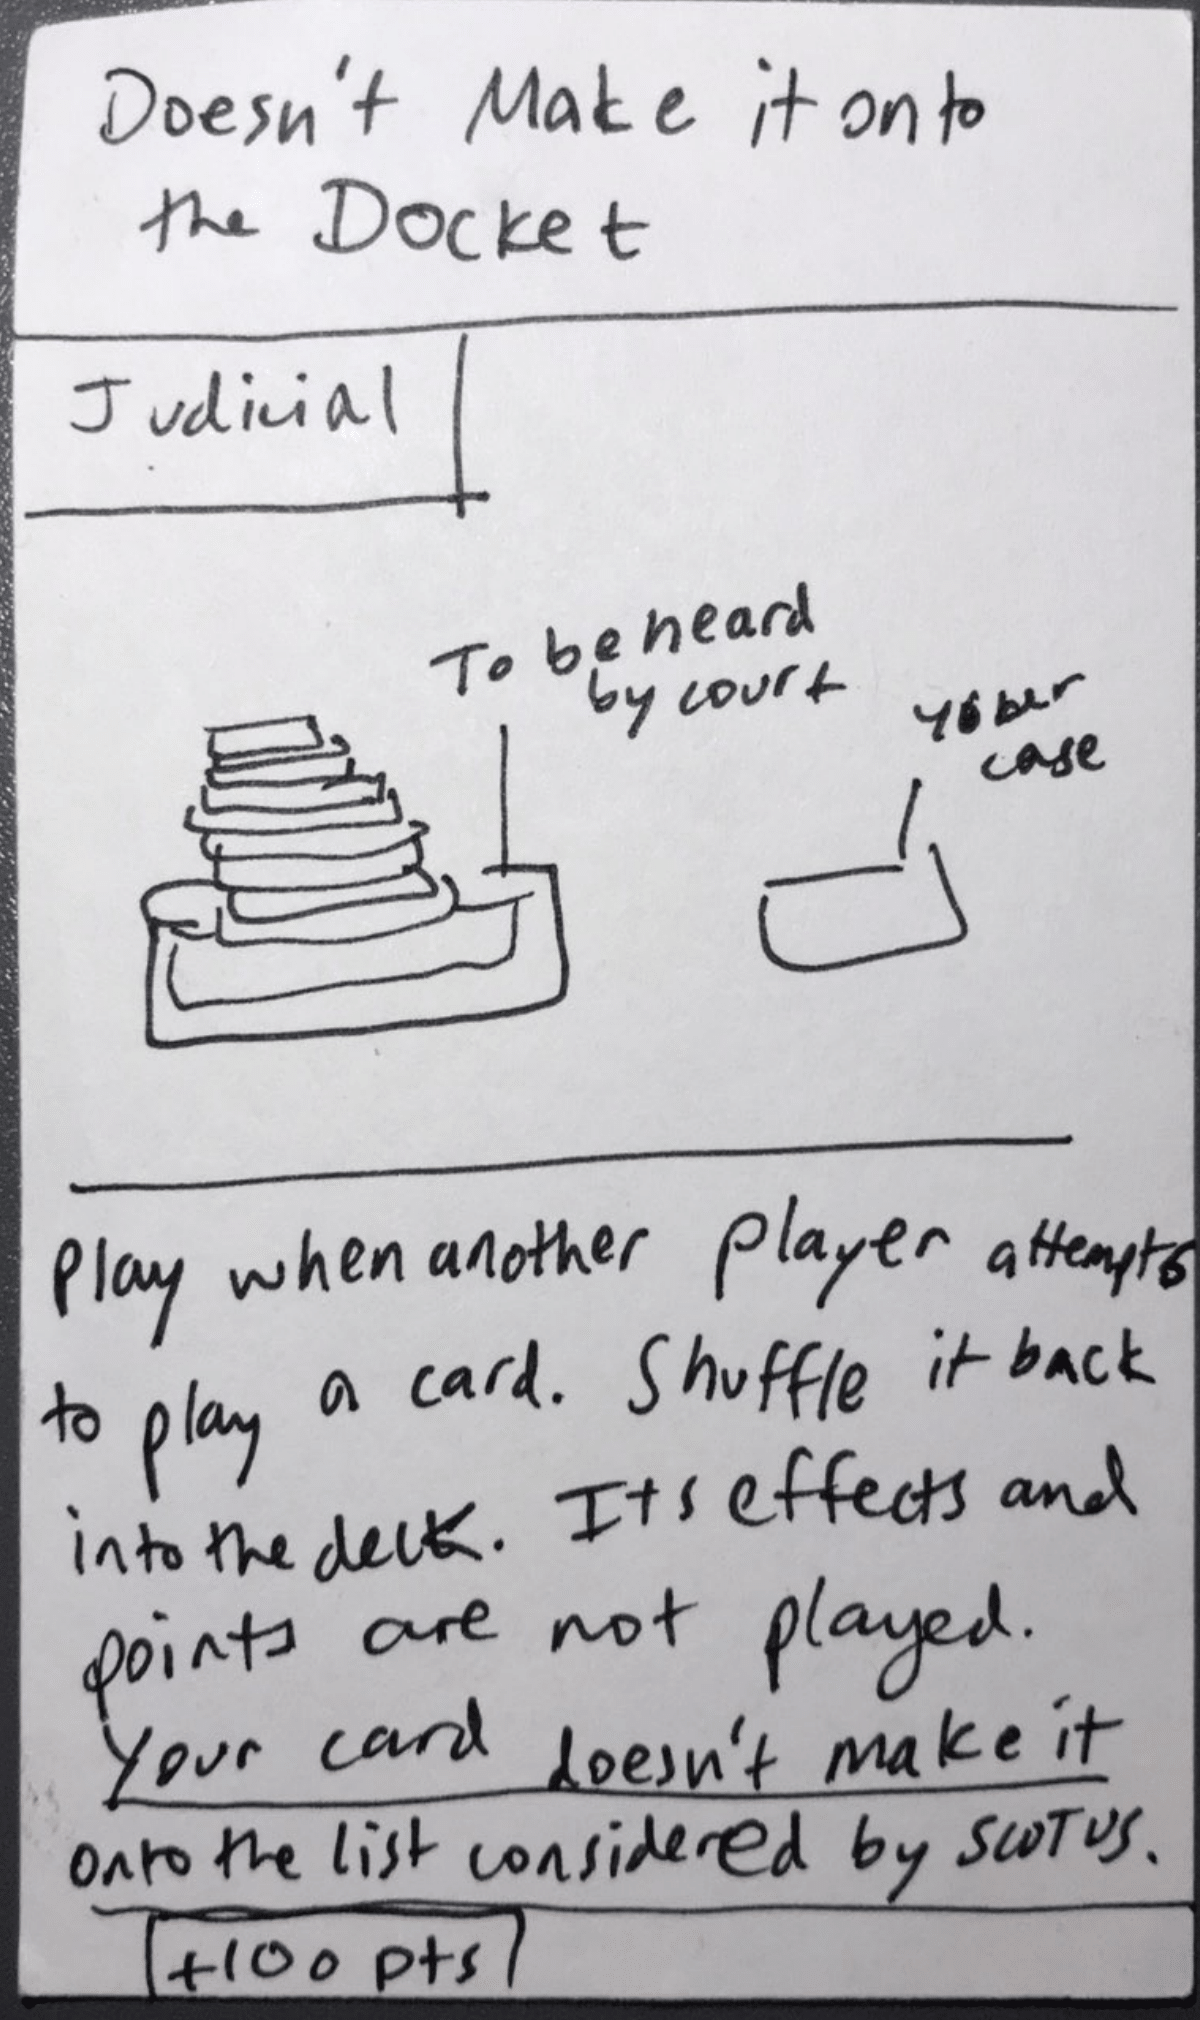 Doesn't Make it onto
the Docket
Judicial
To be heard
by court
your
case
Play when another player attempts
to play a card. Shuffle it back
into the deck. Its effects and
points are not played.
Your card doesn't make it
onto the list considered by SCOTUS.
+100 pts